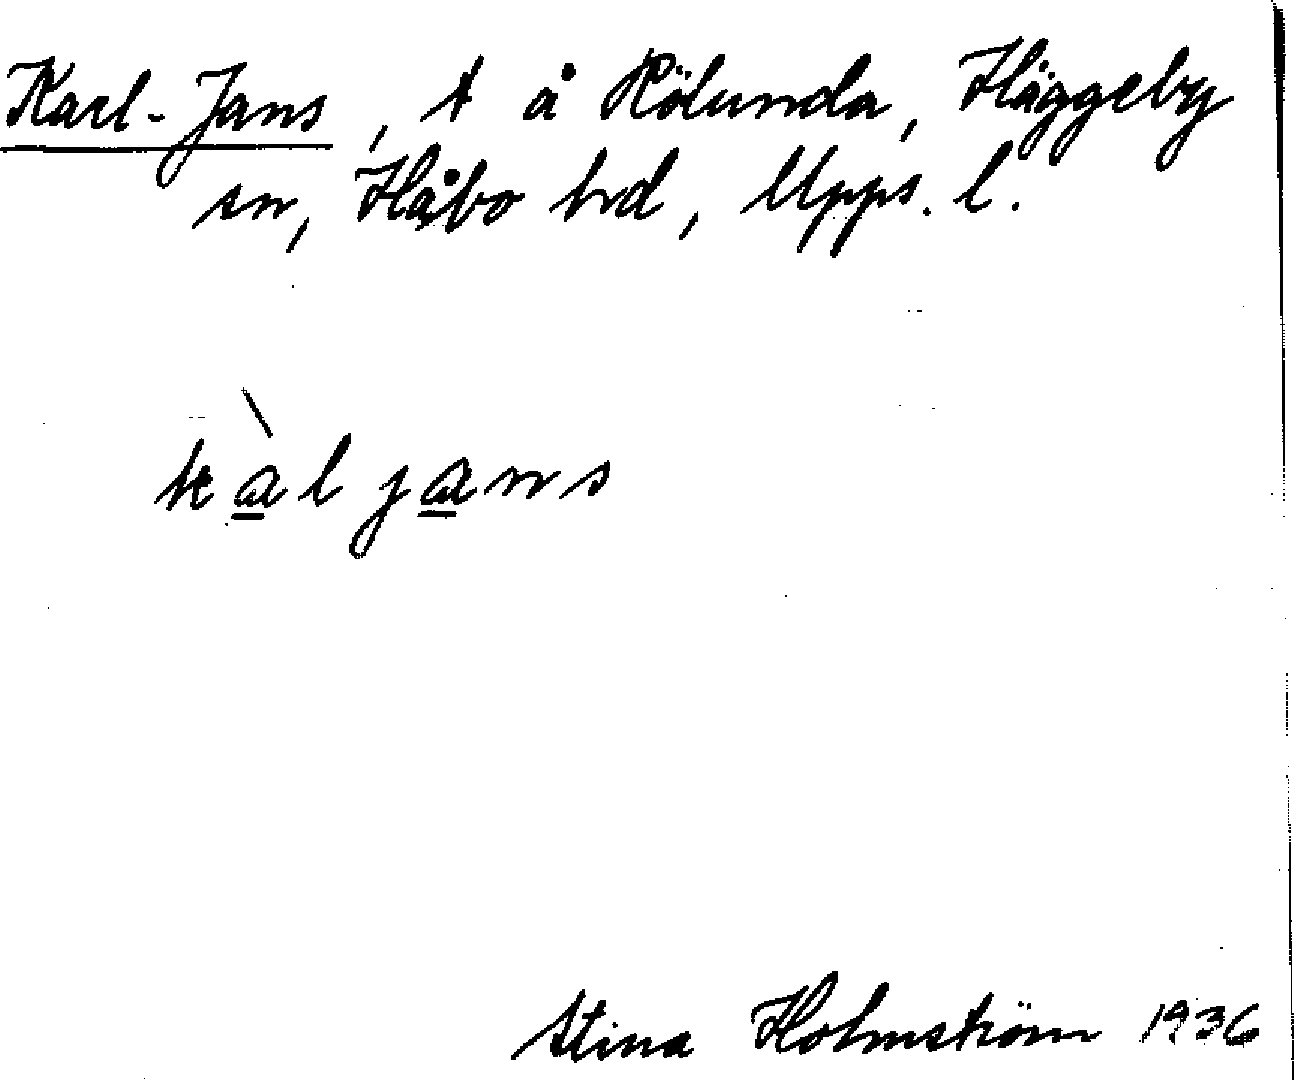 Karl-Jans, t å Rölunda, Häggeby
sn, Håbo hd, Upps. l.
kàl jans
Stina Holmström 1936